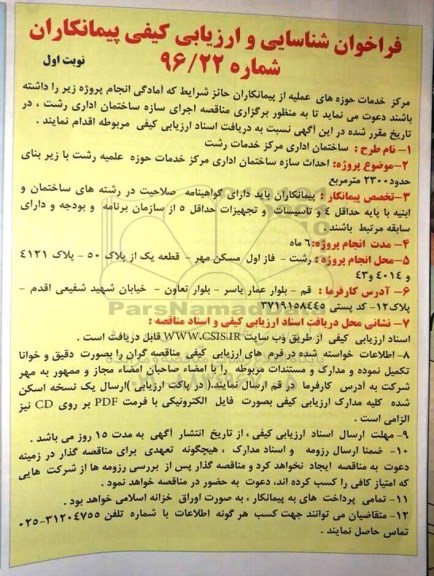 فراخوان شناسایی و ارزیابی کیفی پیمانکاران
شماره ۹۶/۲۲
نوبت اول
مرکز خدمات حوزه های علمیه از پیمانکاران حائز شرایط که آمادگی انجام پروژه زیر را داشته
باشند دعوت می نماید تا به منظور برگزاری مناقصه اجرای سازه ساختمان اداری رشت ، در
تاریخ مقرر شده در این آگهی نسبت به دریافت اسناد ارزیابی کیفی مربوطه اقدام نمایند .
۱- نام طرح : ساختمان اداری مرکز خدمات رشت
۲-موضوع پروژه: احداث سازه ساختمان اداری مرکز خدمات حوزه علمیه رشت با زیر بنای
حدود۲۳۰۰ مترمربع
۳-تخصص پیمانکار : پیمانکاران باید دارای گواهینامه صلاحیت در رشته های ساختمان و
ابنیه با پایه حداقل ٤ و تاسیسات و تجهیزات حداقل ٥ از سازمان برنامه و بودجه و دارای
سابقه مرتبط باشند .
۴- مدت انجام پروژه: ۶ ماه
۵-محل انجام پروژه : رشت - فاز اول مسکن مهر - قطعه یک از پلاک ۵۰ - پلاک ۴۱۲۱
و ۴۰۱۴ و۴۳
۶- آدرس کارفرما : قم - بلوار عمار یاسر - بلوار تعاون - خیابان شهید شفیعی اقدم -
پلاک۱۲- کد پستی ۳۷۱۹۱۵۸۴۴۵
۷- نشانی محل دریافت اسناد ارزیابی کیفی و اسناد مناقصه :
اسناد ارزیابی کیفی از طریق وب سایت WWW.CSIS.IR قابل دریافت است .
۸- اطلاعات خواسته شده در فرم های ارزیابی کیفی مناقصه گران را بصورت دقیق و خوانا
تکمیل نموده و مدارک و مستندات مربوطه را با امضاء صاحبان امضاء مجاز و ممهور به مهر
شرکت به آدرس کارفرما در قم ارسال نمایند.( در پاکت ارزیابی ) ارسال یک نسخه اسکن
شده کلیه مدارک ارزیابی کیفی بصورت فایل الکترونیکی با فرمت PDF بر روی CD نیز
الزامی است .
۹- مهلت ارسال اسناد ارزیابی کیفی ، از تاریخ انتشار آگهی به مدت ۱۵ روز می باشد .
۱۰- ضمنا ارسال رزومه و اسناد مدارک ، هیچگونه تعهدی برای مناقصه گذار در زمینه
دعوت به مناقصه ایجاد نخواهد کرد و مناقصه گذار پس از بررسی رزومه ها از شرکت هایی
که امتیاز کافی را کسب کرده اند، دعوت به حضور در مناقصه خواهد نمود .
۱۱- تمامی پرداخت های به پیمانکار ، به صورت اوراق خزانه اسلامی خواهد بود .
۱۲- متقاضیان می توانند جهت کسب هر گونه اطلاعات با شماره تلفن ۳۱۲۰۴۷۵۵-۰۲۵
تماس حاصل نمایند .